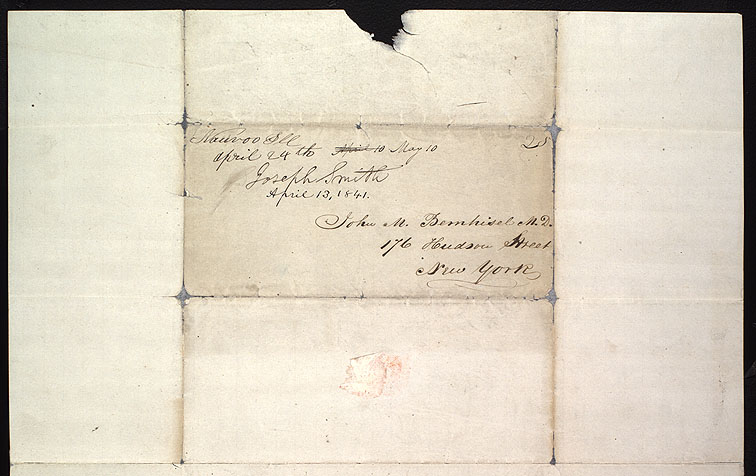 Nauvoo Ill
april 24th April 10 May 10
25
Joseph Smith
April 13, 1841.
John M. Bernhisel M.D.
176 Hudson Street
New York